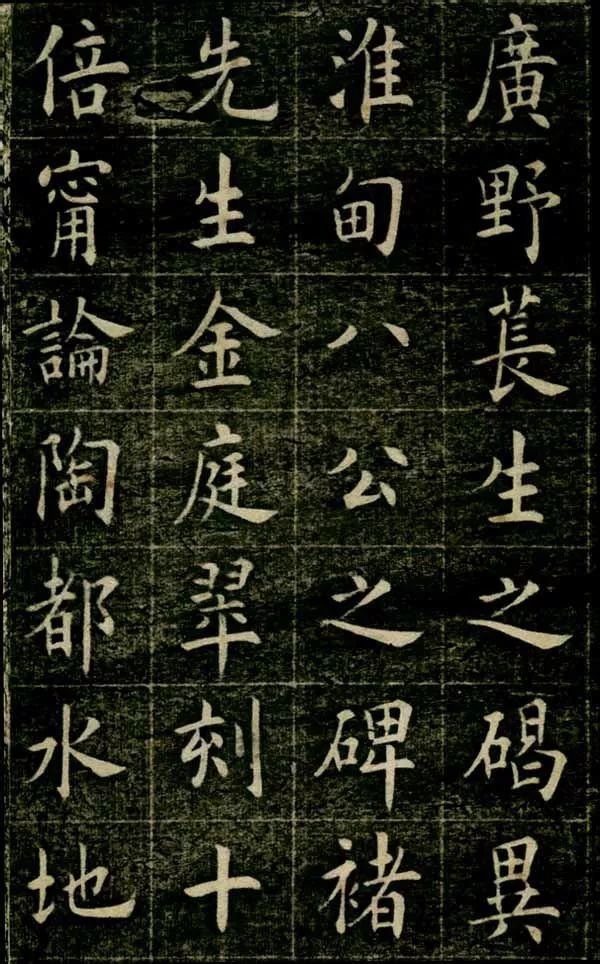 廣野萇生之碣異
淮甸八公之碑褚
先生金庭翆刻十
倍甯論陶都水地